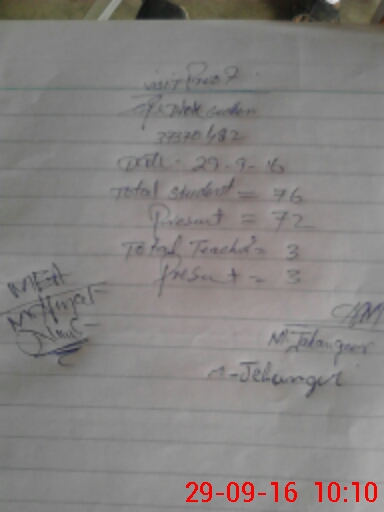 visit Proof
37370482
Date: 29-9-16
Total Student = 76
Present = 72
Total Teacher = 3
Present = 3
MEA
M. Jehangir
M-Jehangir
29-09-16 10:10